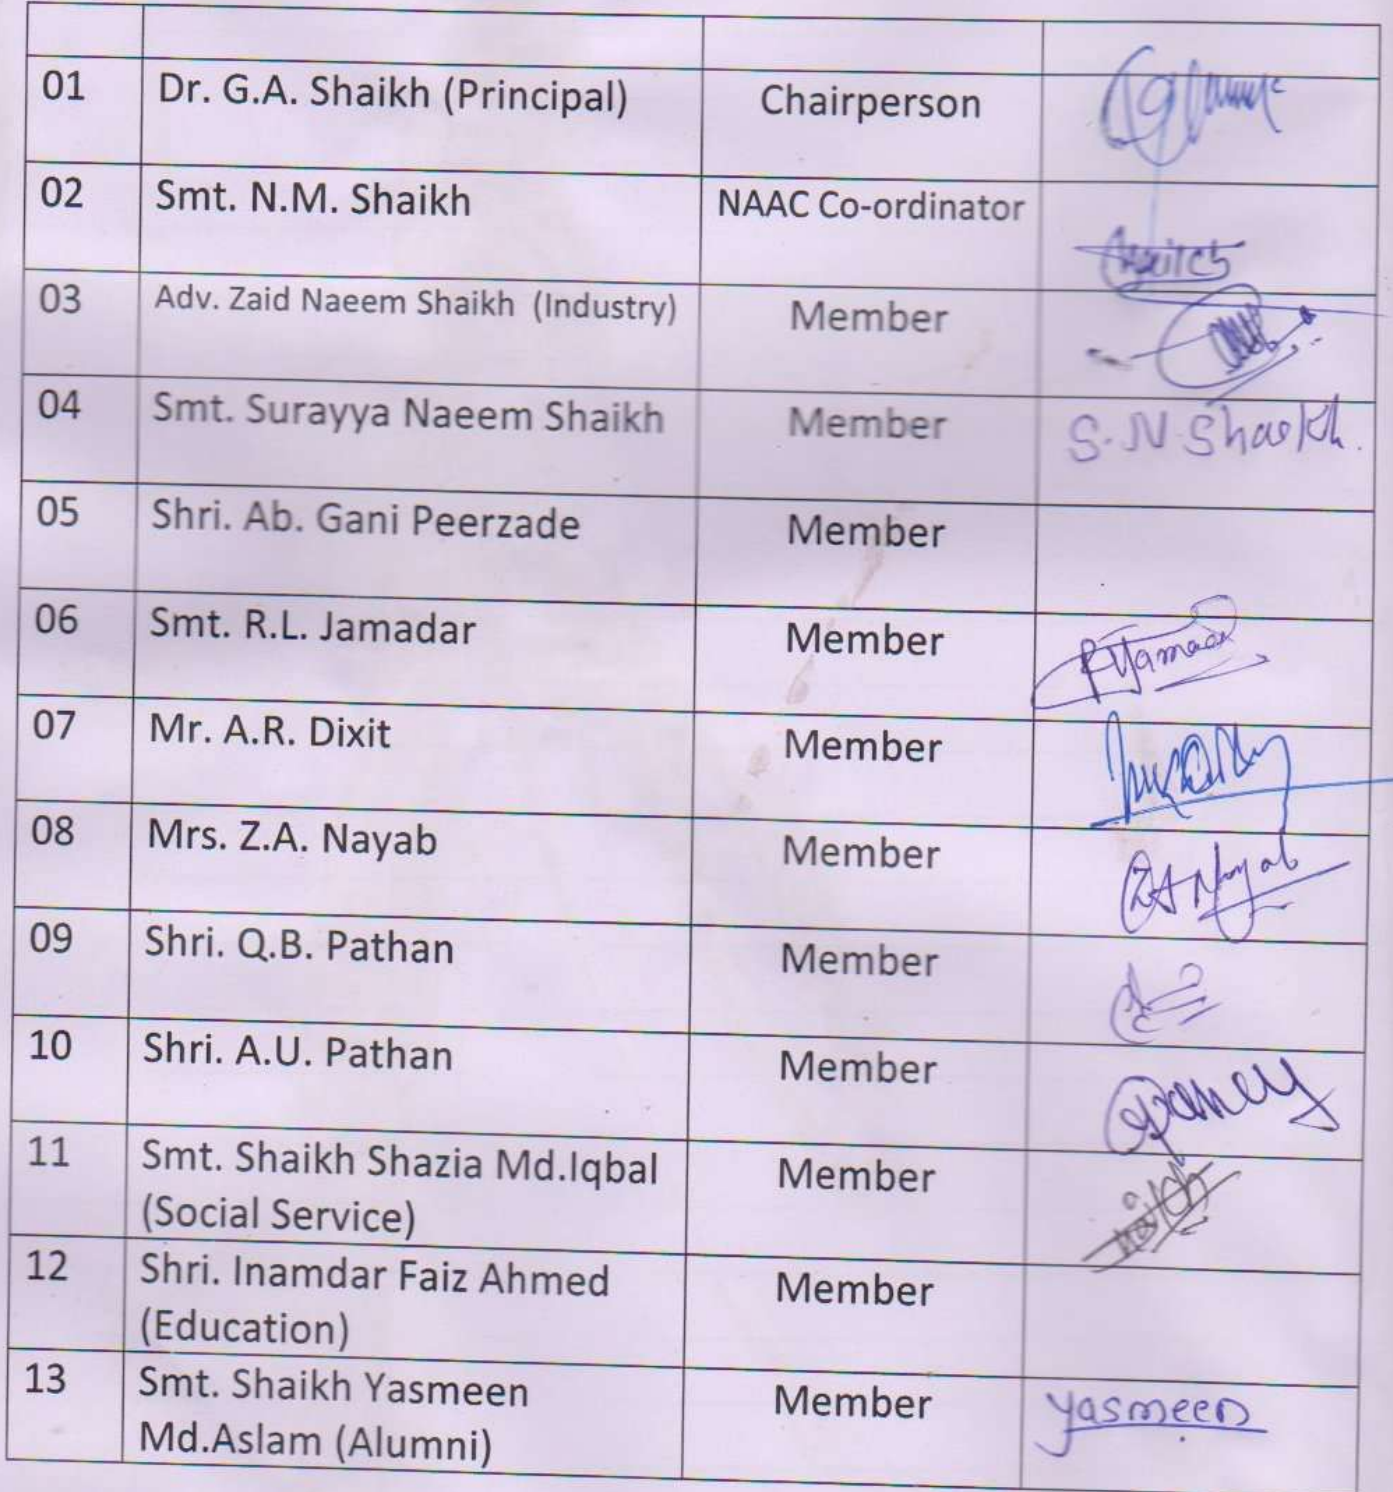 01 Dr. G.A. Shaikh (Principal) Chairperson
02 Smt. N.M. Shaikh NAAC Co-ordinator
03 Adv. Zaid Naeem Shaikh (Industry) Member
04 Smt. Surayya Naeem Shaikh Member S.N Shaikh.
05 Shri. Ab. Gani Peerzade Member
06 Smt. R.L. Jamadar Member
07 Mr. A.R. Dixit Member
08 Mrs. Z.A. Nayab Member ZA Nayab
09 Shri. Q.B. Pathan Member
10 Shri. A.U. Pathan Member
11 Smt. Shaikh Shazia Md.Iqbal Member
(Social Service)
12 Shri. Inamdar Faiz Ahmed Member
(Education)
13 Smt. Shaikh Yasmeen Member Yasmeen
Md.Aslam (Alumni)